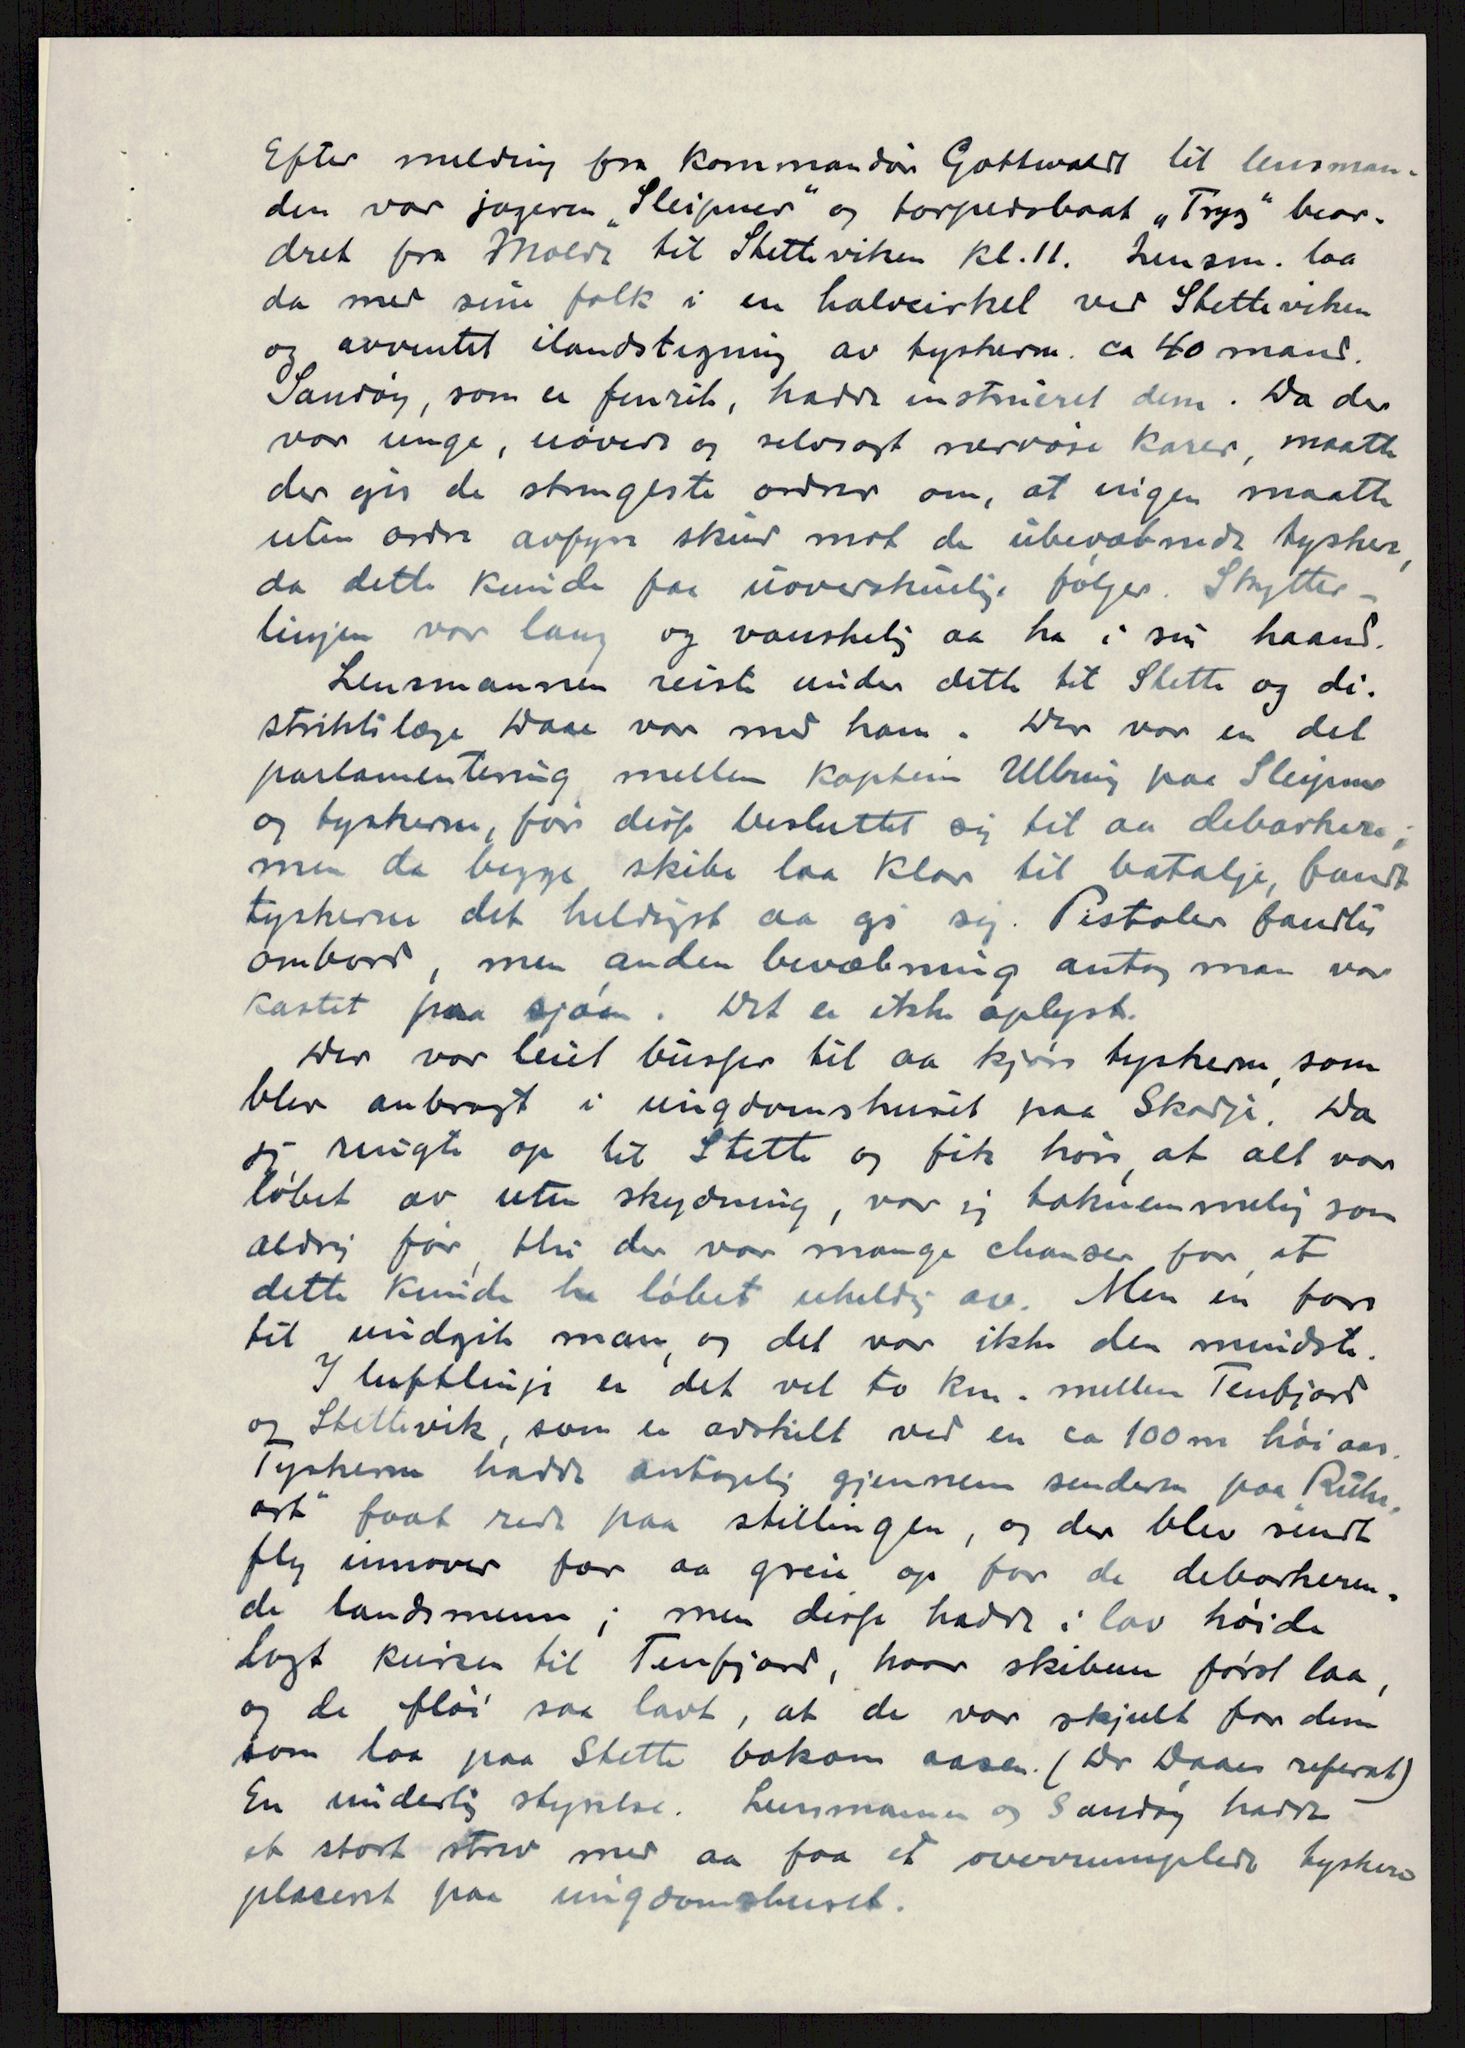 Efter melding fra kommandör Gottwaldt til lensman-
den var jageren „Sleipner" og torpedobaat „Trygg" beor-
dret fra Molde til Stetteviken kl. 11. Lensm. laa
da med sine folk i en halvcirkel ved Stetteviken
og avventet ilandstigning av tyskerne. ca 40 mand.
Sandöy, som er fenrik, hadde instrueret dem. Da der
var unge, uövede og selvsagt nervöse karer, maatte
der gis de strengeste ordrer om, at ingen maatte
uten ordre avfyre skud mot de ubevæbnede tyskere,
da dette kunde faa uoverskuelige fölger. Skytter-
linjen var lang og vanskelig aa ha i sin haand.
Lensmannen reiste under dette til Stette og di-
striktslæge Daae var med ham. Der var en del
parlamentering mellem kaptein Ullring paa Sleipner
og tyskerne, för disse besluttet sig til aa debarkere;
men da begge skibe laa klar til batalje, fandt
tyskerne det heldigst aa gi sig. Pistoler fandtes
ombord, men anden bevæbning antog man var
kastet paa sjöen. Det er ikke oplyst.
Der var leiet busser til aa kjöre tyskerne, som
blev anbragt i ungdomshuset paa Skodje. Da
jeg ringte op til Stette og fik höre, at alt var
löbet av uten skydning, var jeg taknemmelig som
aldrig för, thi der var mange chanser for, at
dette kunde ha löbet uheldig av. Men en fare
til undgik man, og det var ikke den mindste.
I luftlinje er det vel to km. mellem Tenfjord
og Stettevik, som er adskilt ved en ca 100 m höi aas.
Tyskerne hadde antagelig gjennem senderen paa „Ruhr-
ort" faat rede paa stillingen, og der blev sendt
fly innover for aa greie op for de debarkeren-
de landsmenn; men disse hadde i lav höide
lagt kursen til Tenfjord, hvor skibene först laa,
og de flöi saa lavt, at de var skjult for dem
som laa paa Stette bakom aasen. (Dr Daaes referat)
En underlig styrelse. Lensmannen og Sandöy hadde
et stort strev med aa faa et overrumplede tyskere
placeret paa ungdomshuset.